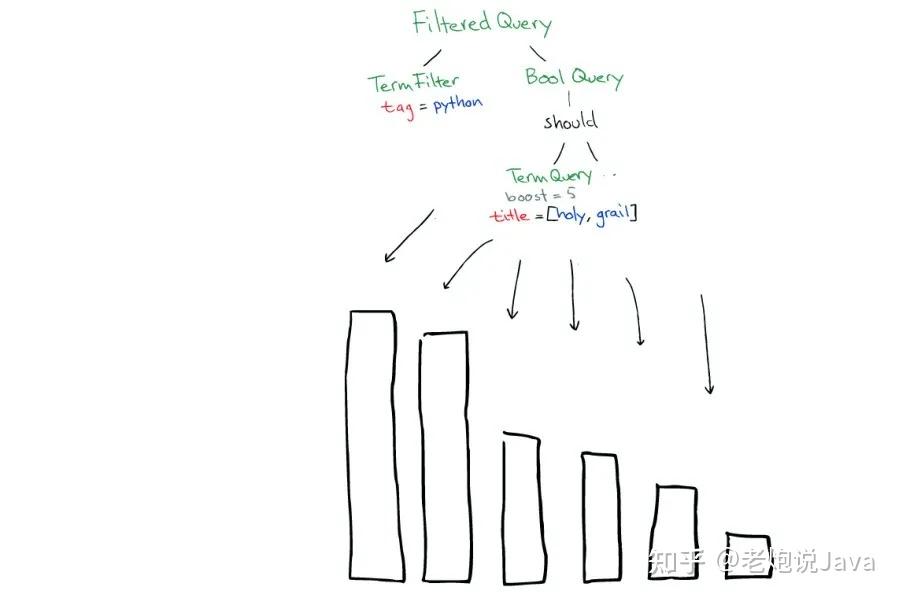 Filtered Query
TermFilter
tag = python
Bool Query
should
TermQuery ..
boost = 5
title = [holy, grail]
知乎 @老炮说Java